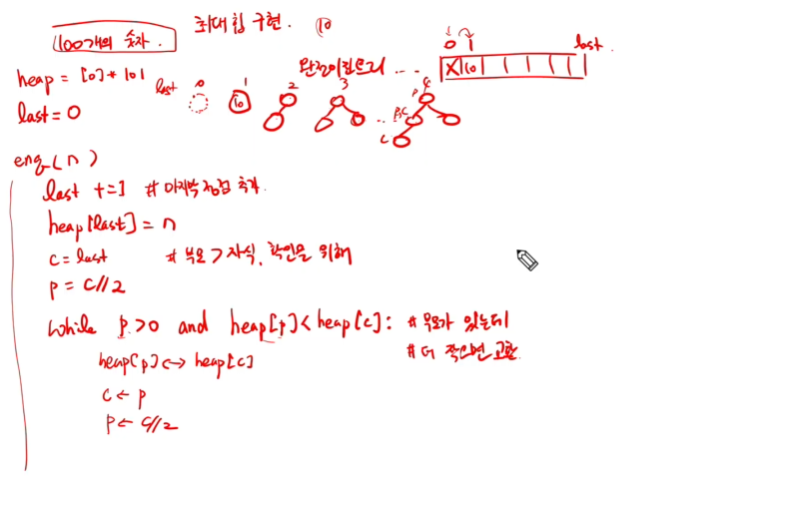 최대힙 구현. 10
100개의 숫자.
heap = [0] * 101
last = 0
last 0 1 2 3 완전이진트리 ... 4
10
p
p.c
c
0 1 last
X 10
enq(n)
last += 1 # 마지막 정점 추가
heap[last] = n
c = last # 부모 > 자식, 확인을 위해
p = c//2
while p>0 and heap[p] < heap[c]: # 부모가 있는데
# 더 작으면 교환
heap[p] <-> heap[c]
c ← p
p ← c//2